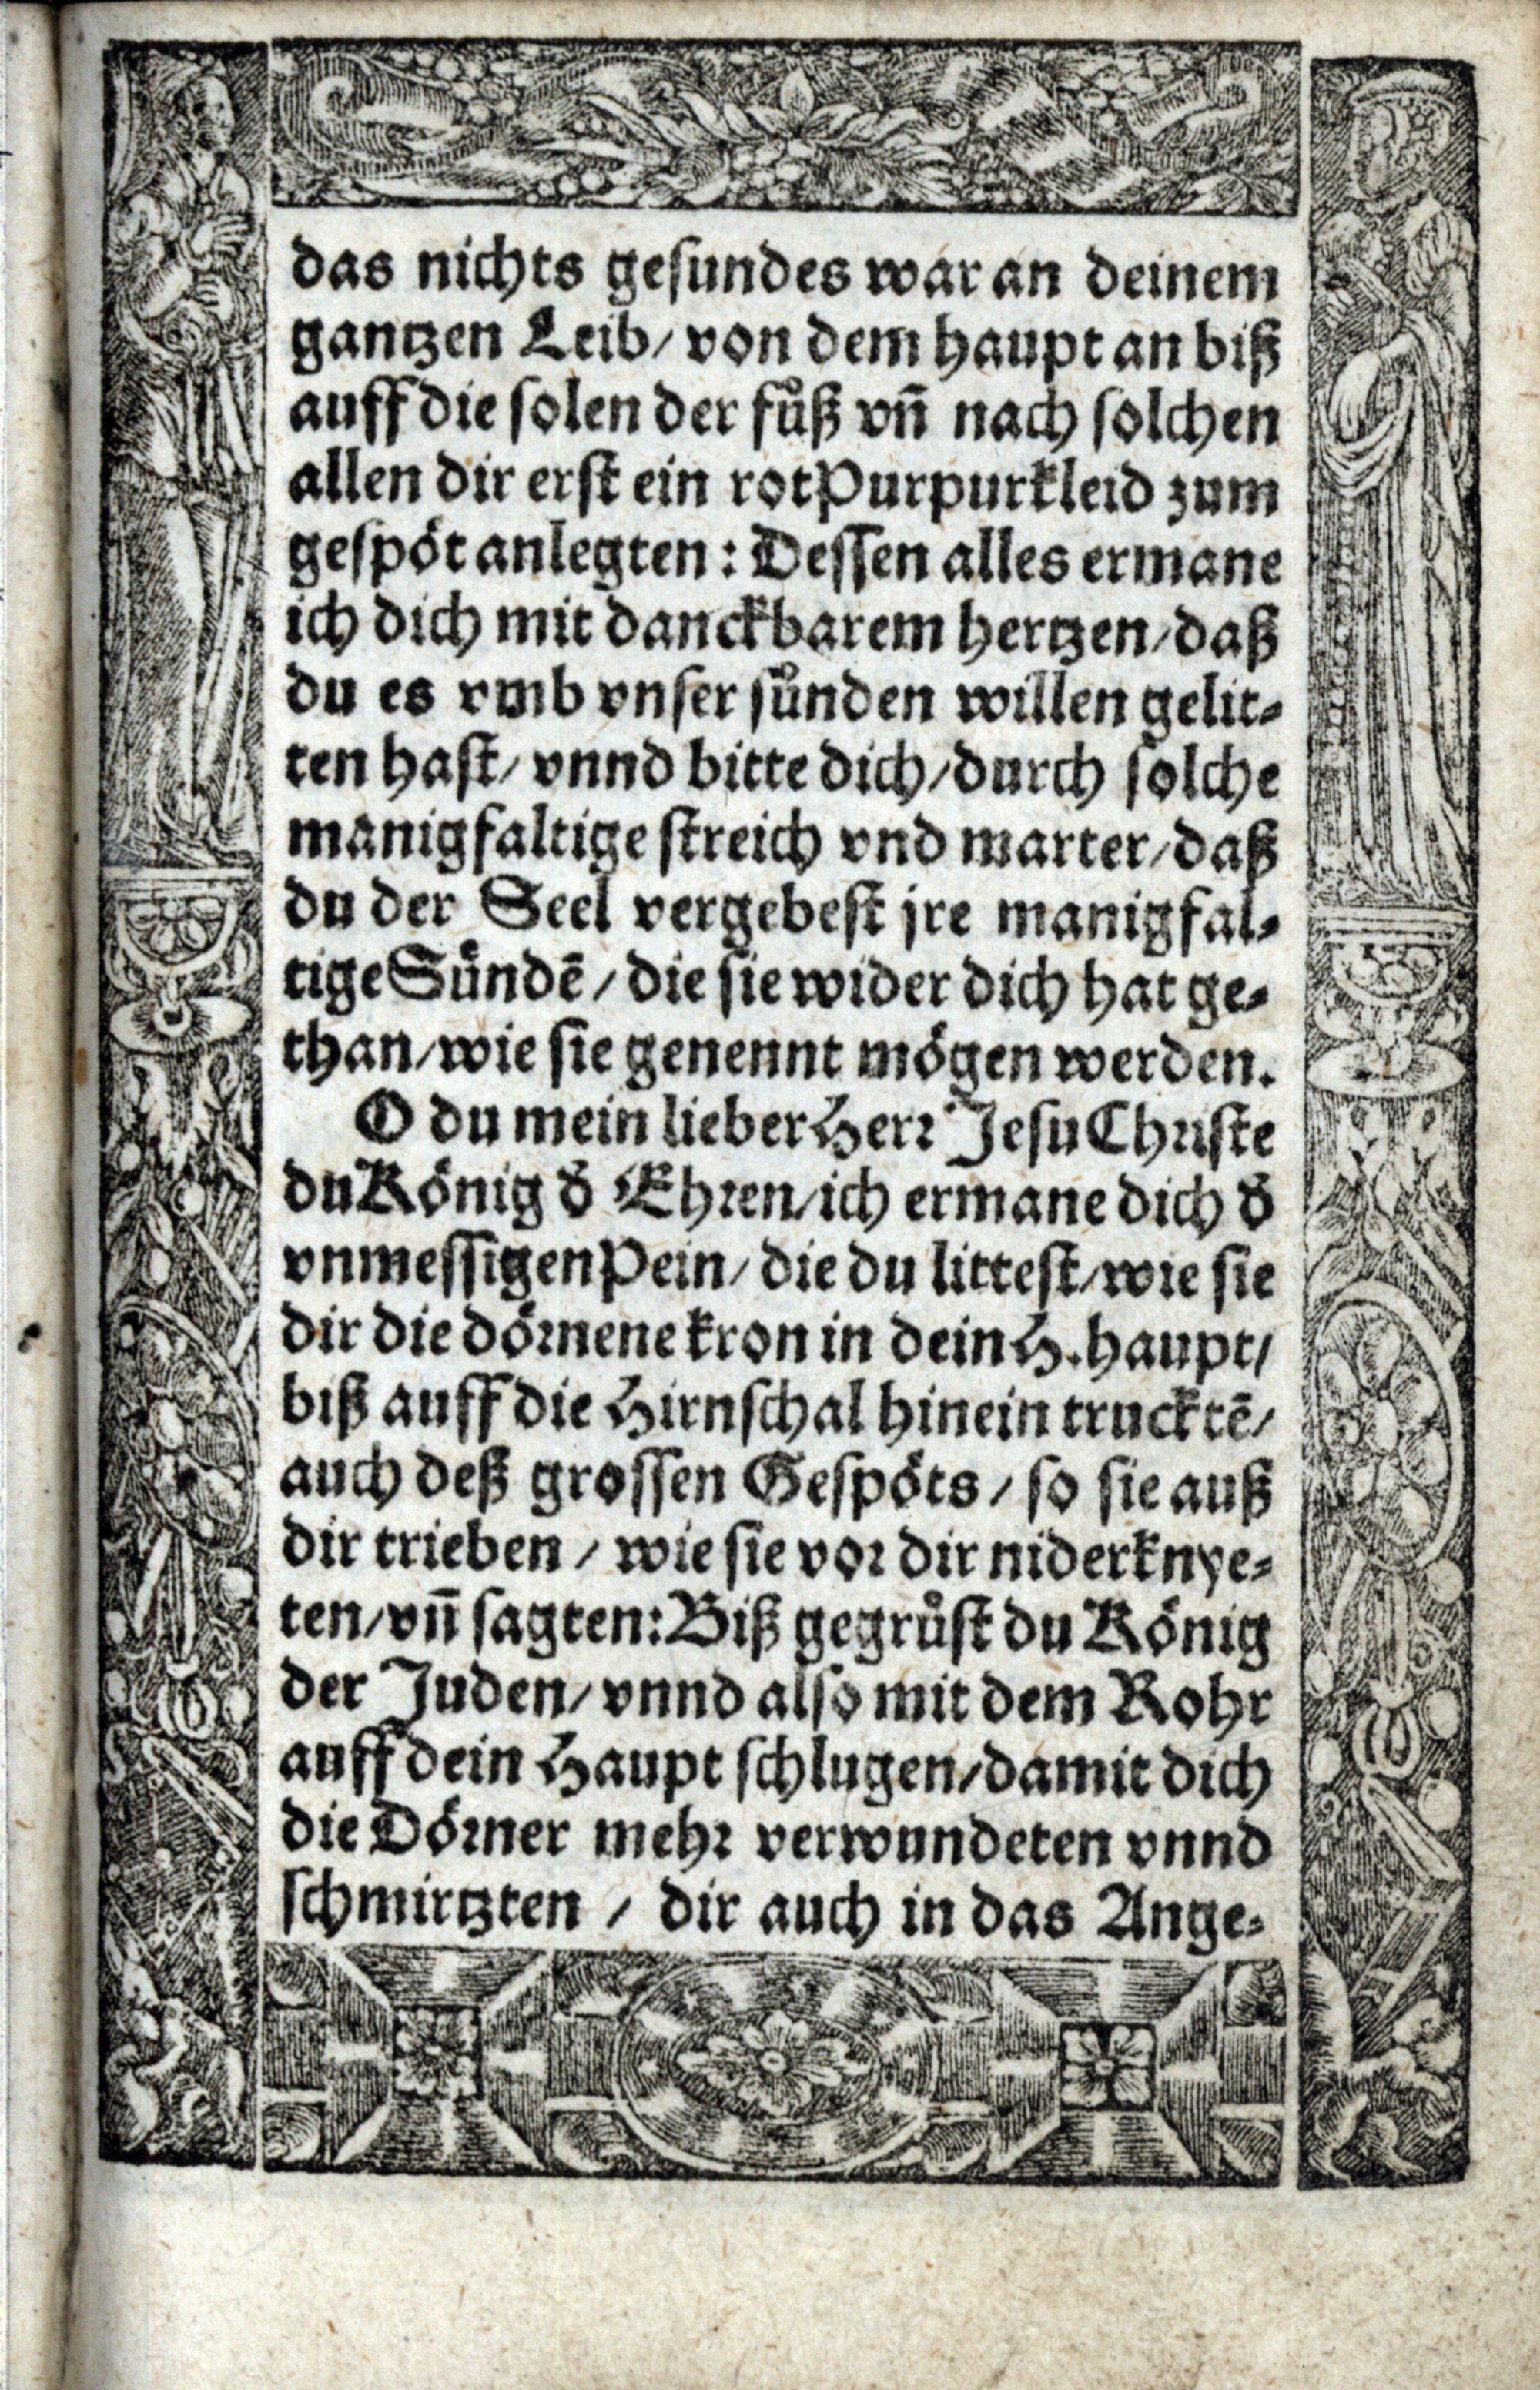 das nichts gesundes war an deinem
gantzen Leib/ von dem haupt an biß
auff die solen der fuͤß vn̄ nach solchen
allen dir erst ein rot Purpurkleid zum
gespoͤt anlegten: Dessen alles ermane
ich dich mit danckbarem hertzen/ daß
du es vmb vnser suͤnden willen gelit-
ten hast/ vnnd bitte dich/ durch solche
manigfaltige streich vnd marter/ daß
du der Seel vergebest jre manigfal-
tige Suͤndē/ die sie wider dich hat ge-
than/ wie sie genennt moͤgen werden.
O du mein lieber Herr Jesu Christe
du Koͤnig d̄ Ehren/ ich ermane dich d̄
vnmessigen Pein/ die du littest/ wie sie
dir die doͤrnene kron in dein H. haupt/
biß auff die Hirnschal hinein trucktē/
auch deß grossen Gespoͤts/ so sie auß
dir trieben/ wie sie vor dir niderknye-
ten/ vn̄ sagten: Biß gegruͤst du Koͤnig
der Juden/ vnnd also mit dem Rohr
auff dein Haupt schlugen/ damit dich
die Doͤrner mehr verwundeten vnnd
schmirtzten / dir auch in das Ange-